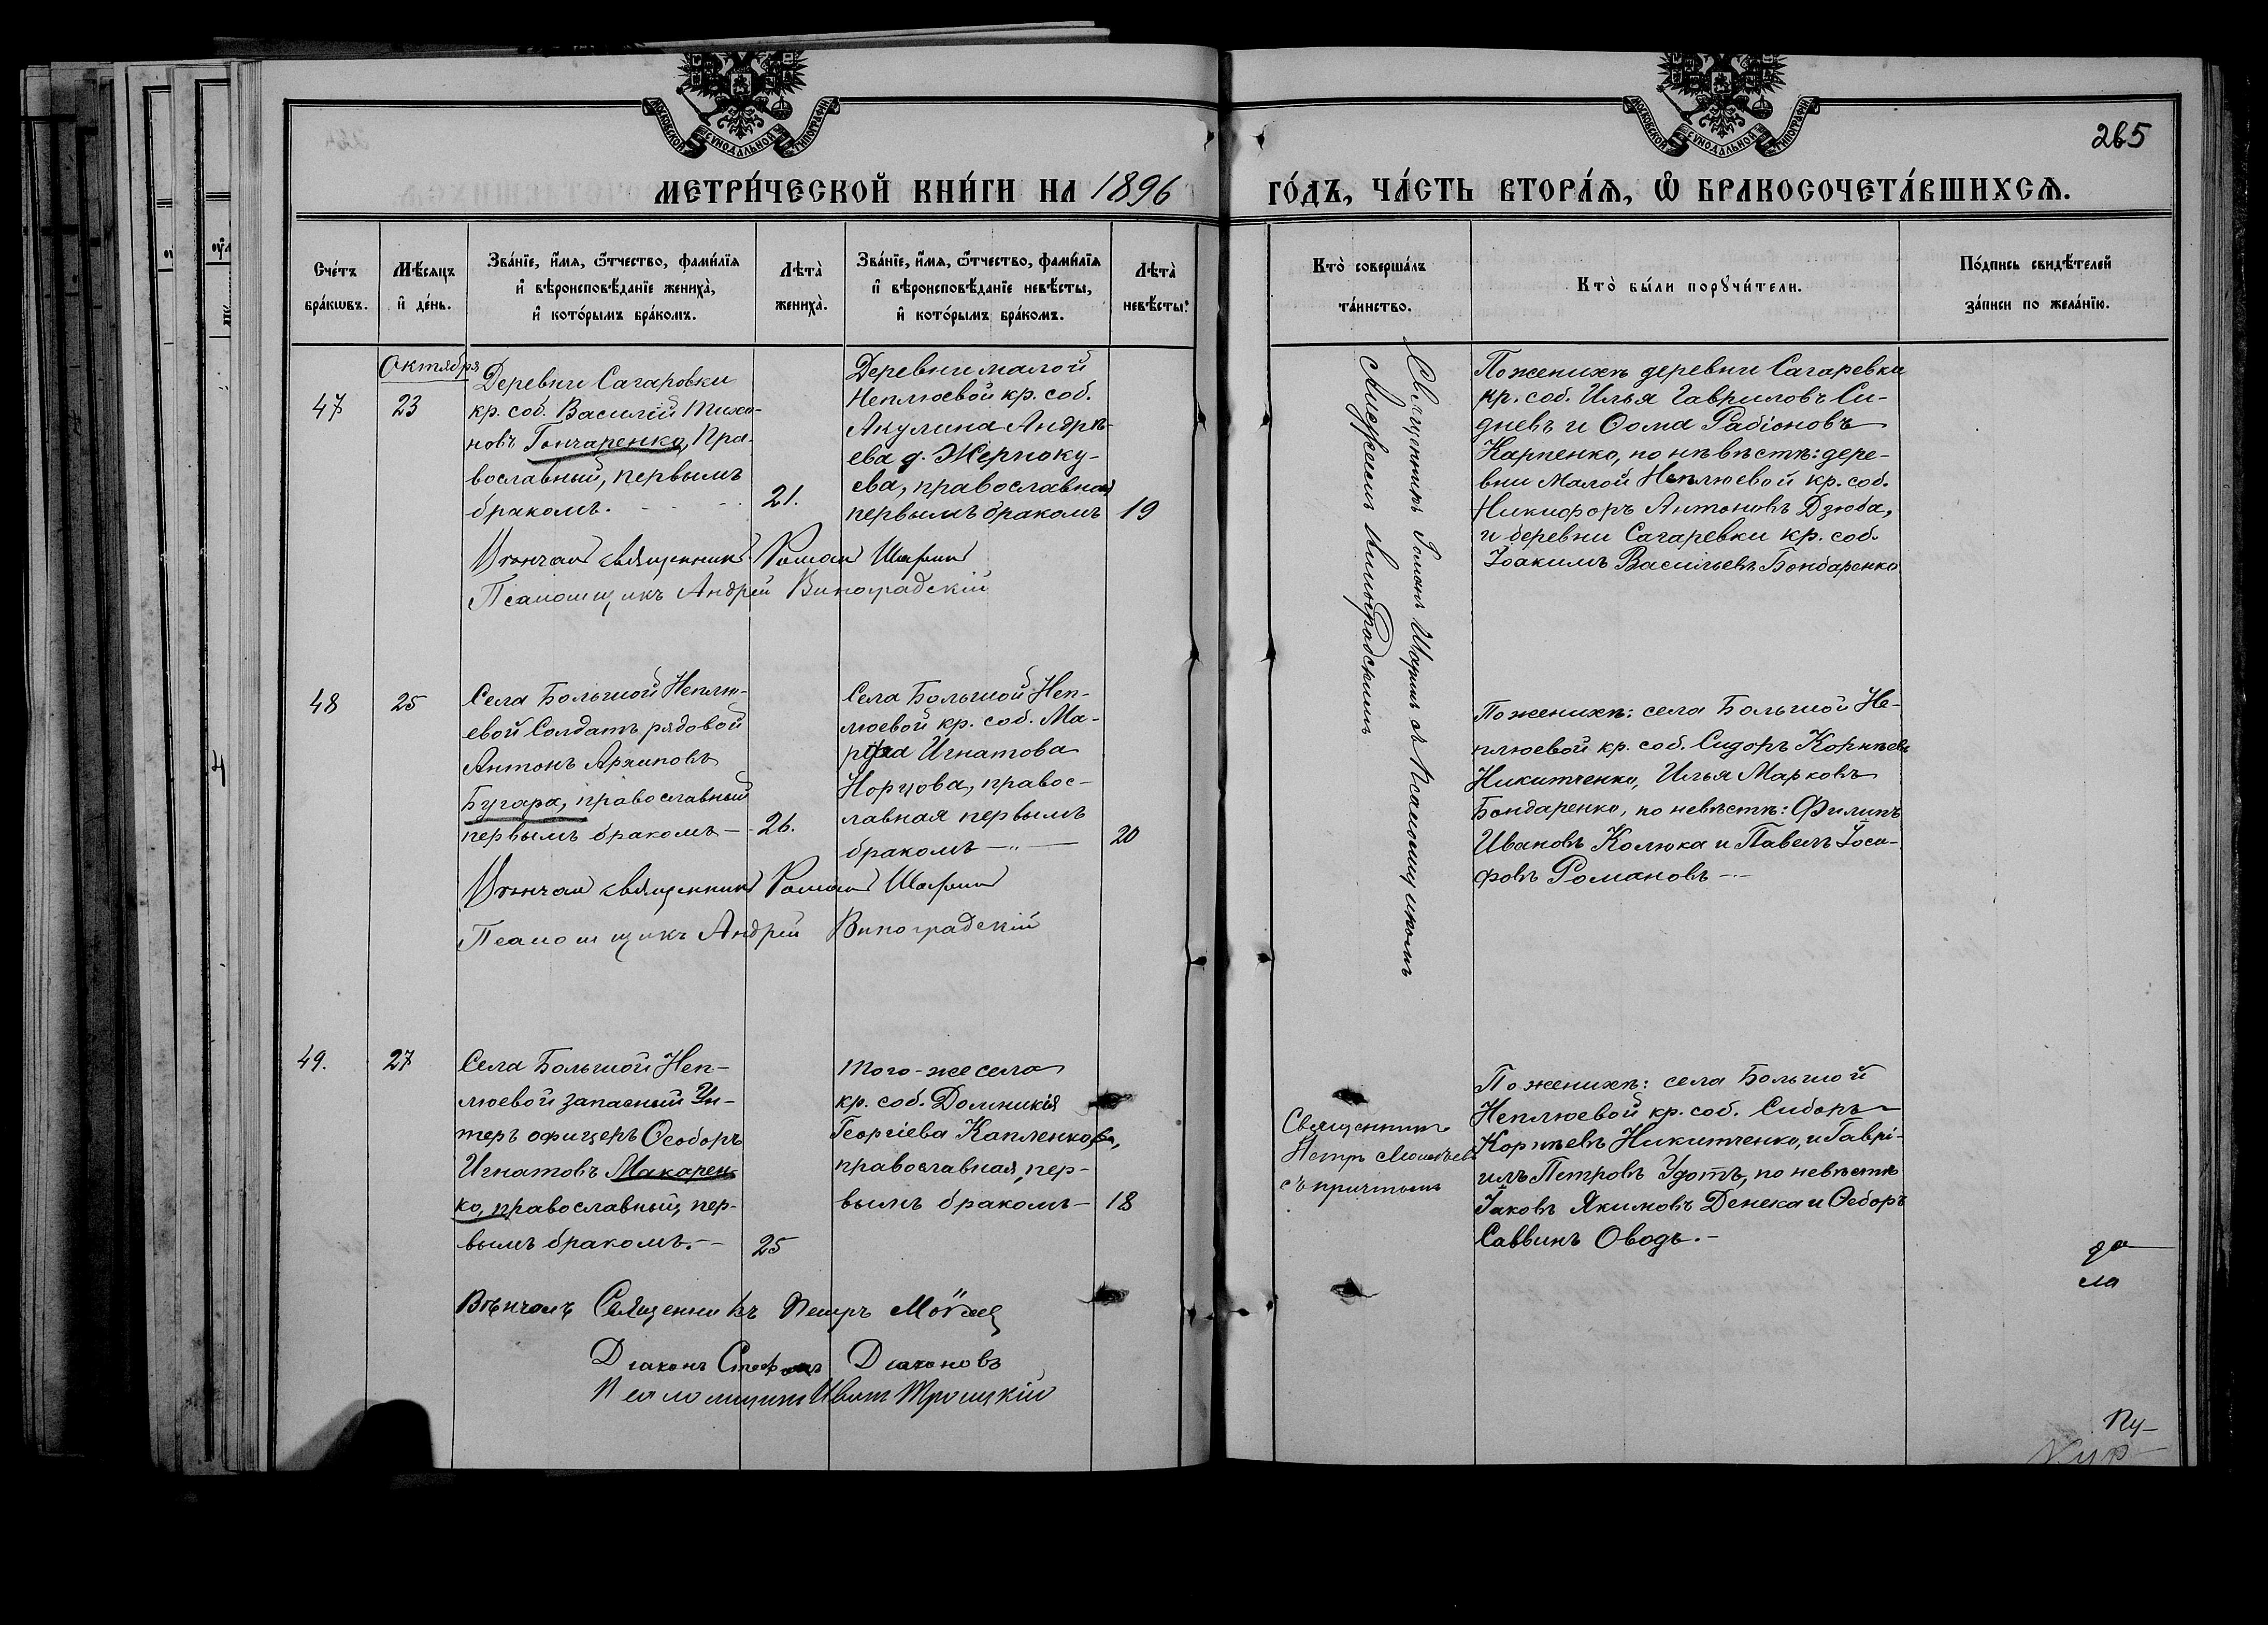 МОСКОВСКОЙ СУНОДАЛЬНОЙ ТИПОГРАФІИ
МОСКОВСКОЙ СУНОДАЛЬНОЙ ТИПОГРАФІИ
265
МЕТРИ́ЧЕСКОЙ КНИ́ГИ НА 1896
ГО́ДЪ, ЧА́СТЬ ВТОРА́Ѧ, Ѽ БРАКОСОЧЕТА́ВШИХСѦ.
Сче́тъ бра́кѡвъ.
Мѣ́сяцъ и҆ де́нь.
Зва́нїе, и҆́мя, ѻ҆́тчество, фами́лїя и҆ вѣроисповѣ́данїе жениха̀, и҆ кото́рымъ бра́комъ.
Лѣта̀ жениха̀.
Зва́нїе, и҆́мя, ѻ҆́тчество, фами́лїя и҆ вѣроисповѣ́данїе невѣ́сты, и҆ кото́рымъ бра́комъ.
Лѣта̀ невѣ́сты.
Кто̀ соверша́лъ та́инство.
Кто̀ бы́ли порꙋчи́тели.
По́дпись свидѣ́телей за́писи по жела́нїю.
Октября
47
23
Деревни Сагаровки
кр. соб. Василій Тихо-
новъ Гончаренко, пра-
вославный, первымъ
бракомъ.
21.
Деревни малой
Неплюевой кр. соб.
Акулина Андрѣ-
ева д. Жерноку-
ева, православная
первымъ бракомъ
19
Священникъ Романъ съ псаломщикомъ
Андреемъ Виноградскимъ
По женихѣ деревни Сагаревки
кр. соб. Илья Гавриловъ Си-
дневъ и Ѳома Радіоновъ
Карпенко, по нѣвѣстѣ: дере-
вни Малой Неплюевой кр. соб.
Никифоръ Антоновъ Дзюба,
и деревни Сагаревки кр. соб.
Іоакимъ Васильевъ Бондаренко
Вѣнчалъ священникъ Романъ
Псаломщикъ Андрей Виноградскій
48
25
Села Большой Неплю-
евой Солдатъ рядовой
Антонъ Архиповъ
Бугара, православный
первымъ бракомъ —
26.
Села Большой Неп-
люевой кр. соб. Ма-
рфа Игнатова
Норцова, правос-
лавная первымъ
бракомъ —
20
По женихѣ: села Большой Не-
плюевой кр. соб. Сидоръ Корнѣевъ
Никитченко, Илья Марковъ
Бондаренко, по невѣстѣ: Филипъ
Ивановъ Колюка и Павелъ Іоси-
фовъ Романовъ —
Вѣнчалъ священникъ Романъ
Псаломщикъ Андрей Виноградскій
49.
27
Села Большой Неп-
люевой запасный Ун-
теръ офицеръ Ѳеодоръ
Игнатовъ Макарен-
ко, православный, пер-
вымъ бракомъ. —
25
того-же села
кр. соб. Домникія
Георгіева Капленкова,
православная, пер-
вымъ бракомъ —
18
Священникъ
Петръ
съ причтомъ
По женихѣ: села Большой
Неплюевой кр. соб. Сидоръ
Корнѣевъ Никитченко, и Гаврі-
илъ Петровъ Удотъ, по невѣстѣ
Іаковъ Якимовъ Денека и Ѳедоръ
Саввинъ Оводъ. —
да
ла
Вѣнчалъ Священникъ Петръ
Діаконъ Стефанъ Діаконовъ
Псаломщикъ Иванъ Троицкій